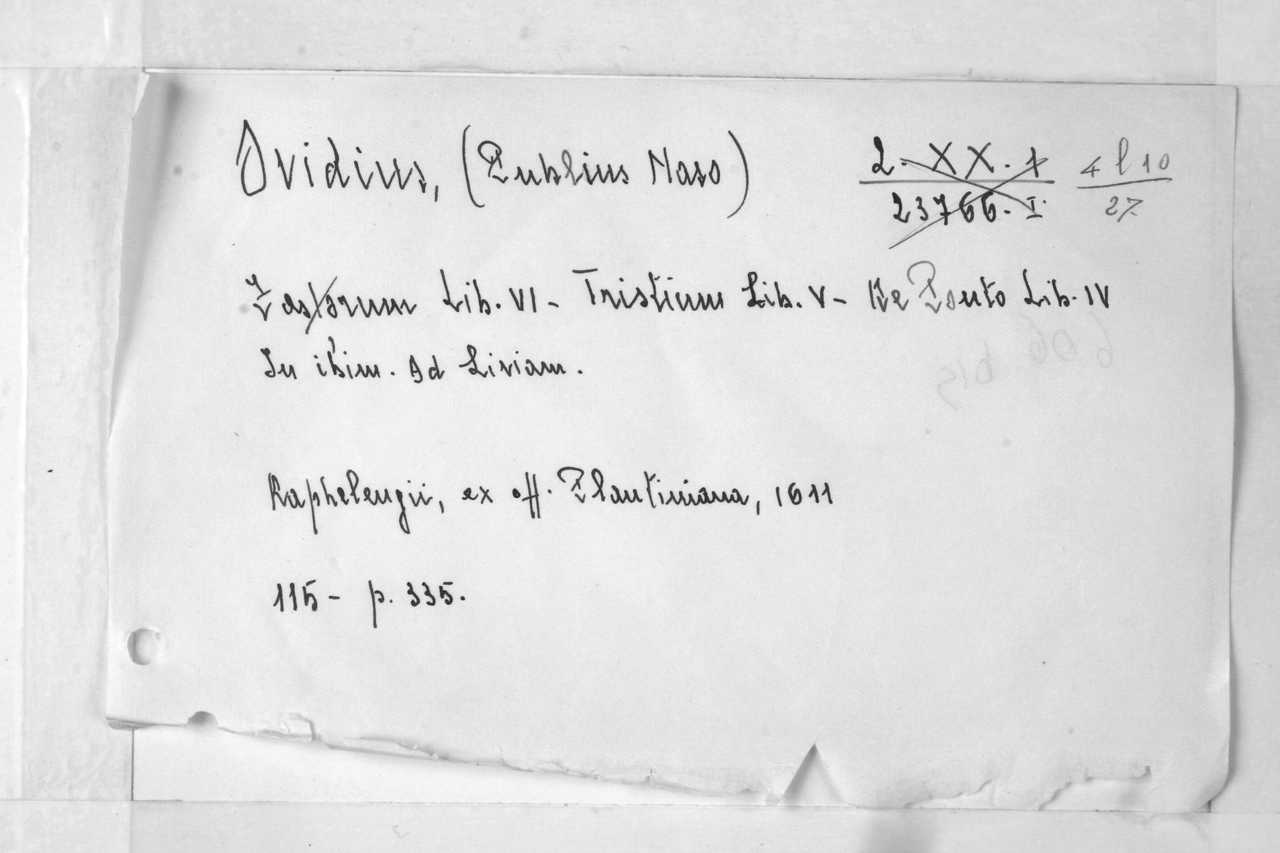 Ovidius, (Publius Naso)
2. XX. 1
23766. I.
4 l 10
27
Fastorum Lib. VI - Tristium Lib. V - De Ponto Lib. IV
In ibim. Ad Liviam.
Raphelengii, ex off. Plantiniana, 1611
115 - p. 335.